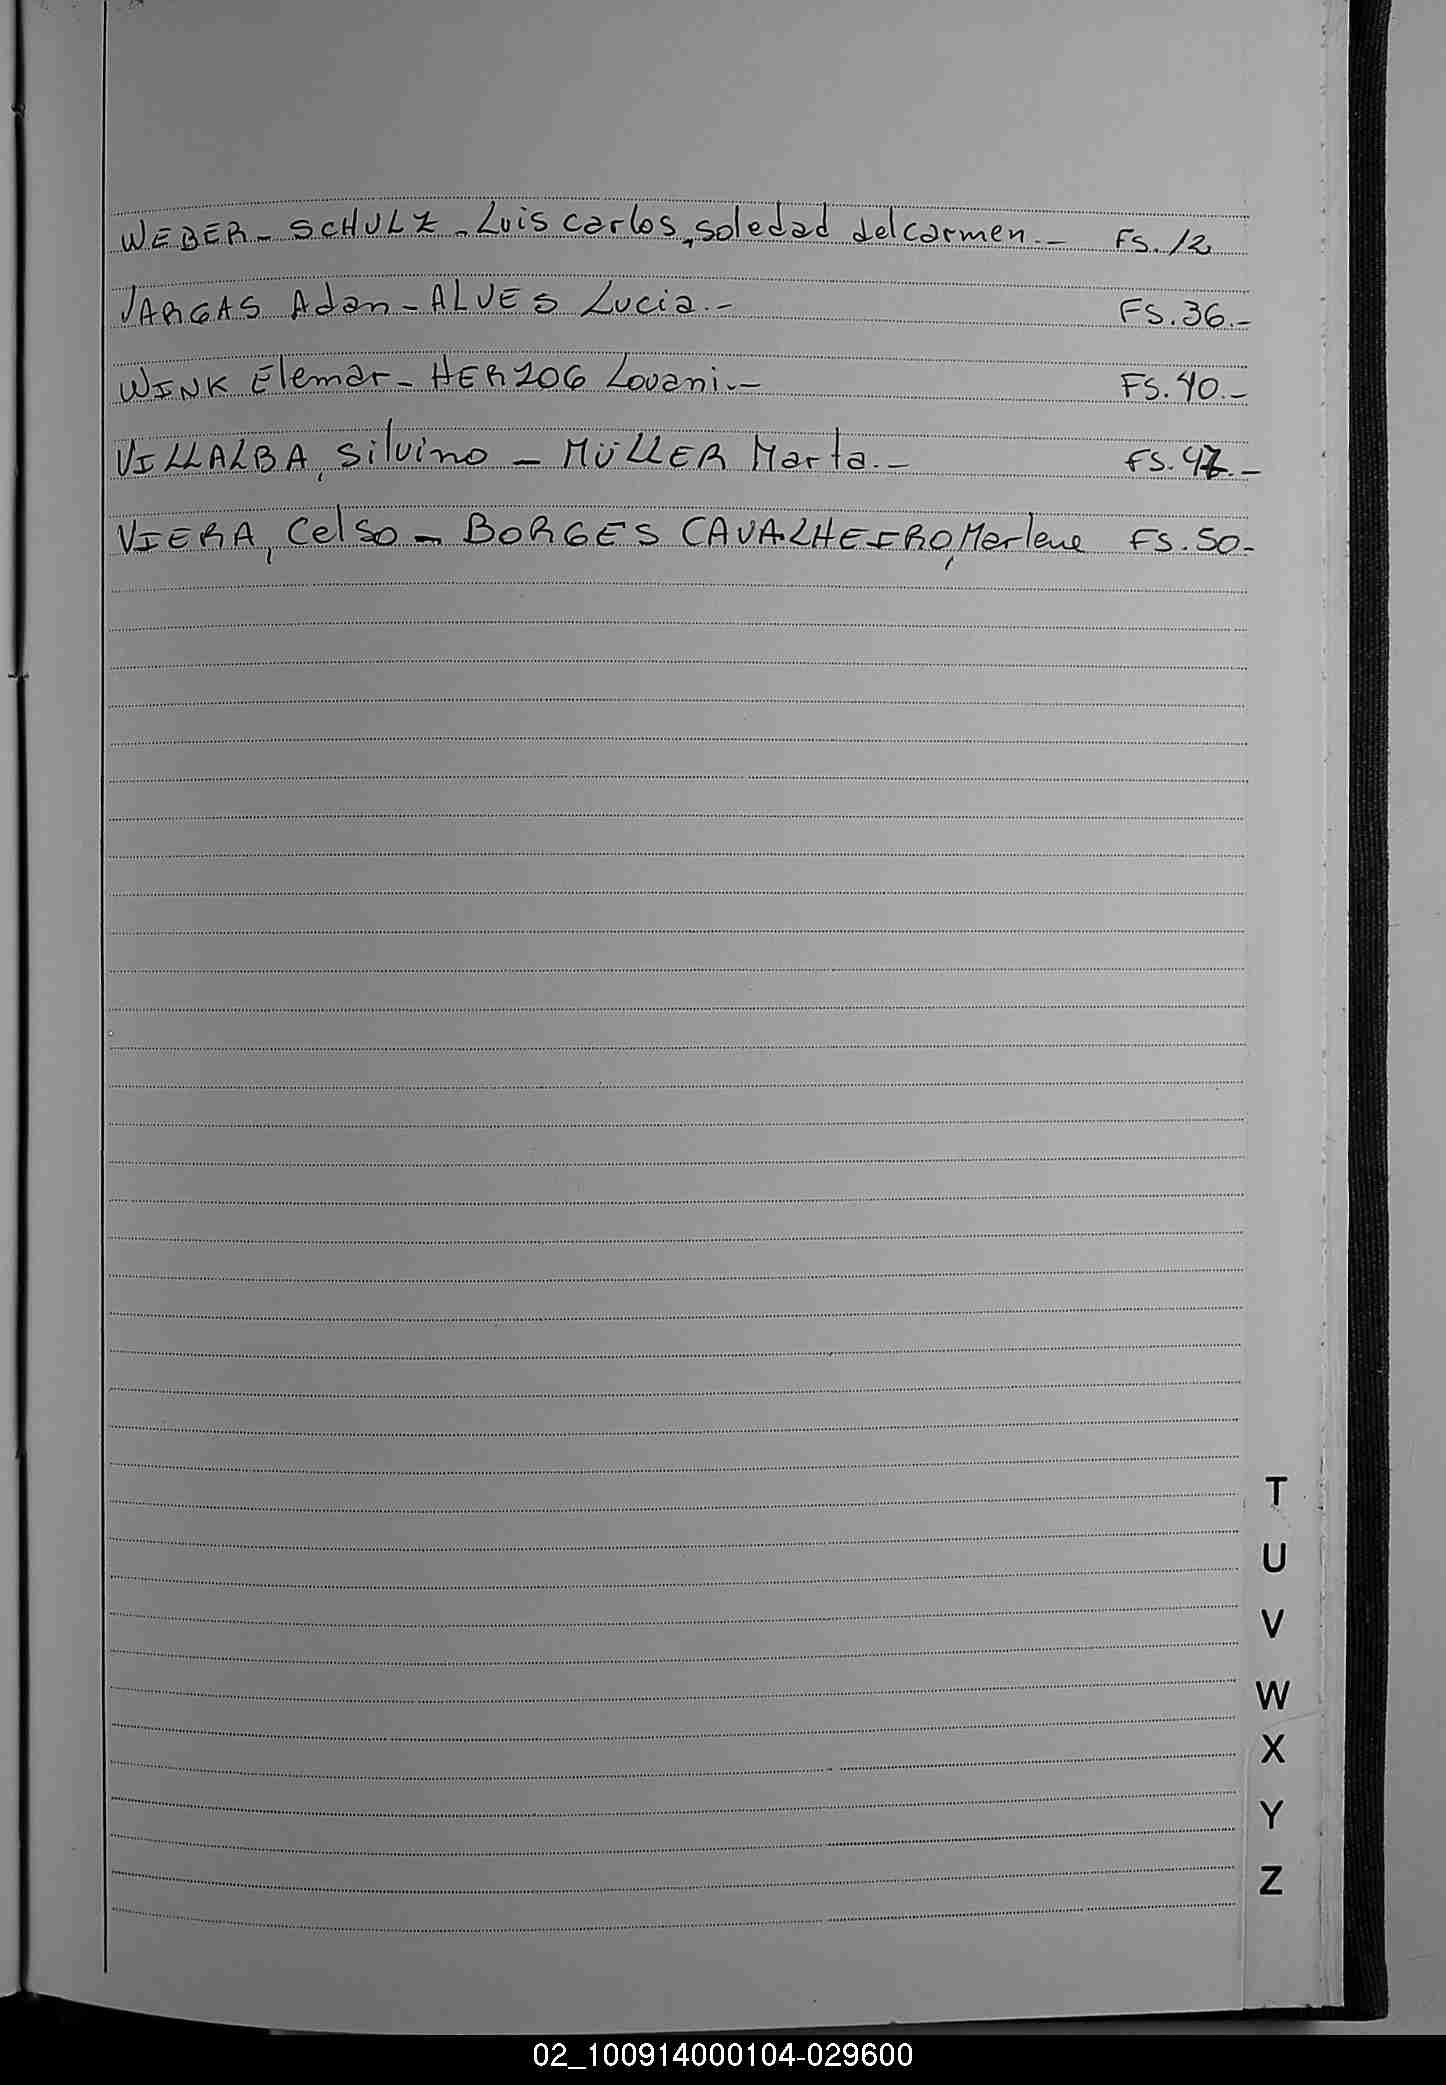 WEBER - SCHULZ - Luis carlos, soledad del carmen.- FS. 12
VARGAS Adan - ALVES Lucia.- FS. 36.-
WINK Elemar - HERZOG Lovani.- FS. 40.-
VILLALBA, silvino - MÜLLER Marta.- FS. 47.-
VIERA, Celso - BORGES CAVALHEIRO, Marlene FS. 50-
T
U
V
W
X
Y
Z
02_100914000104-029600